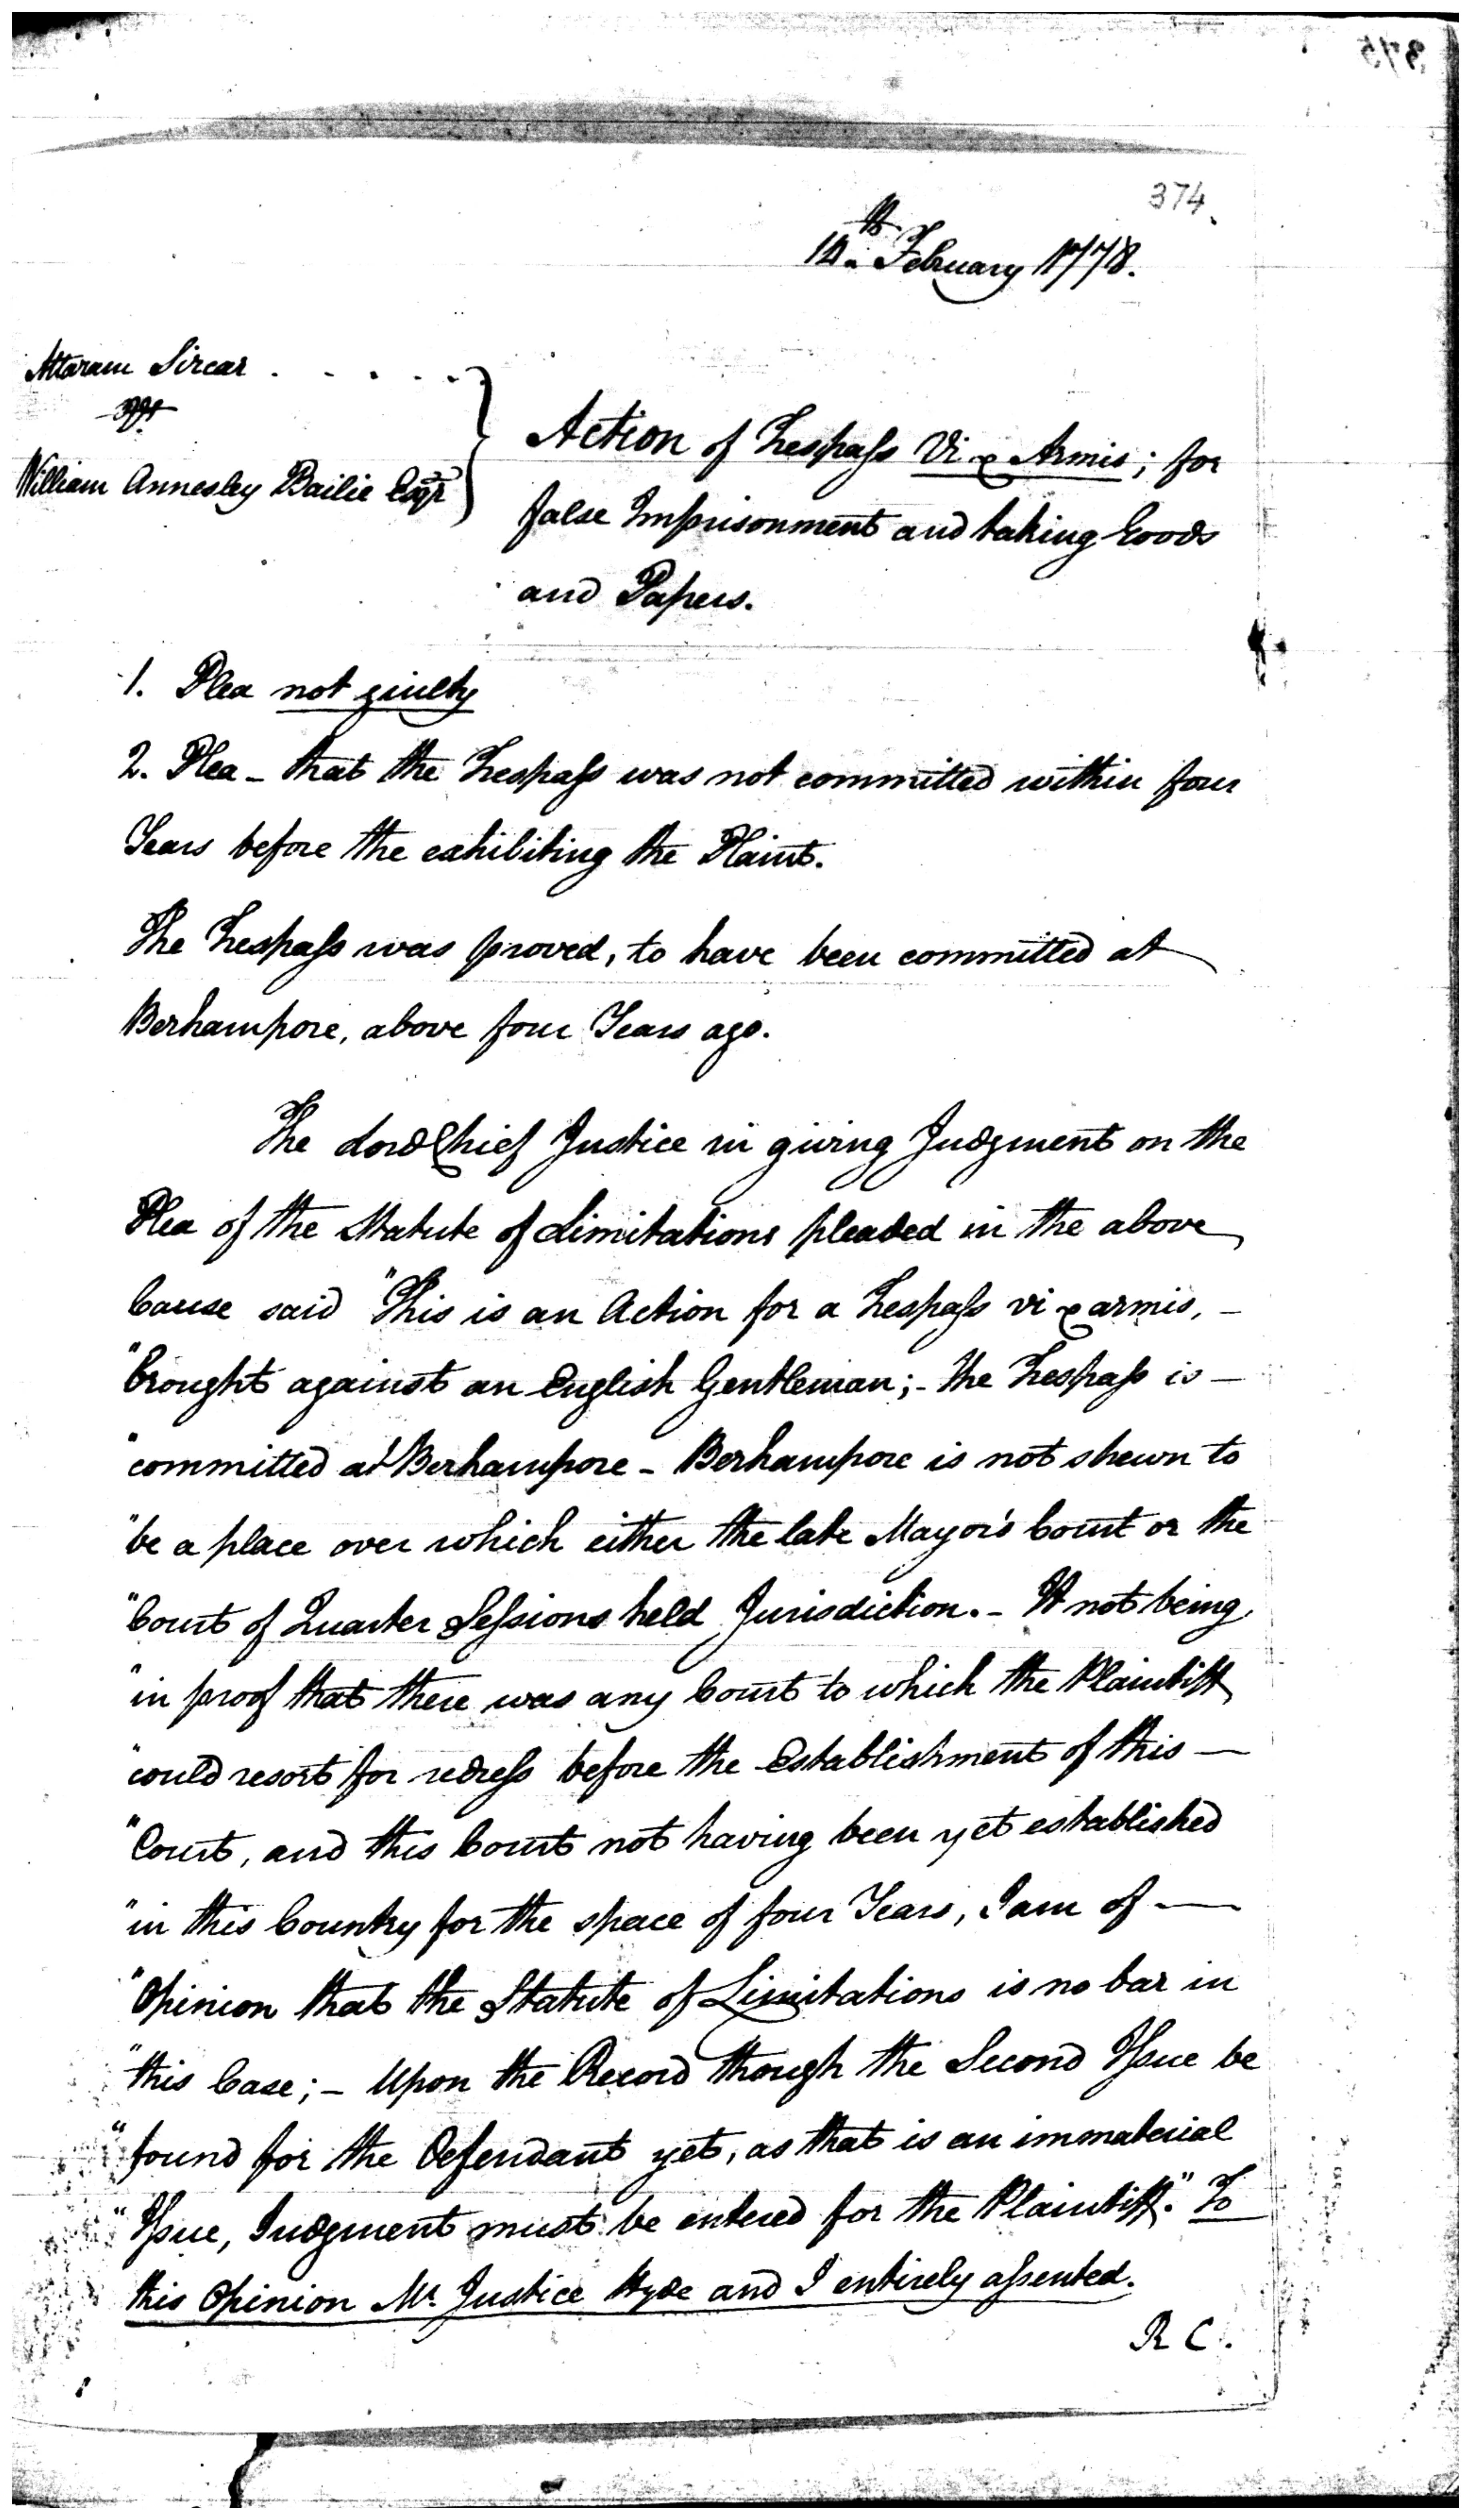 374
14th February 1778.
Attaram Sircar . . . . .
William Annesley Bailie Esqr
Action of Trespass Vi & Armis; for
false Imprisonment and taking Goods
and Papers.
1. Plea not guilty
2. Plea - that the Trespass was not committed within four
Years before the exhibiting the Plaint.
The Trespass was proved, to have been committed at
Berhampore, above four Years ago.
The Lord Chief Justice in giving Judgment on the
Plea of the Statute of Limitations pleaded in the above
Cause said "This is an Action for a Trespass vi & armis, -
"brought against an English Gentleman; - the Trespass is -
"committed at Berhampore - Berhampore is not shewn to
"be a place over which either the late Mayor's Court or the
"Court of Quarter Sessions held Jurisdiction. - It not being
"in proof that there was any Court to which the Plaintiff
"could resort for redress before the Establishment of this -
"Court, and this Court not having been yet established
"in this Country for the space of four Years, I am of -
"Opinion that the Statute of Limitations is no bar in
"this Case; - Upon the Record though the Second Issue be
"found for the Defendant yet, as that is an immaterial
"Issue, Judgment must be entered for the Plaintiff." To
this Opinion Mr. Justice Hyde and I entirely assented.
R C.